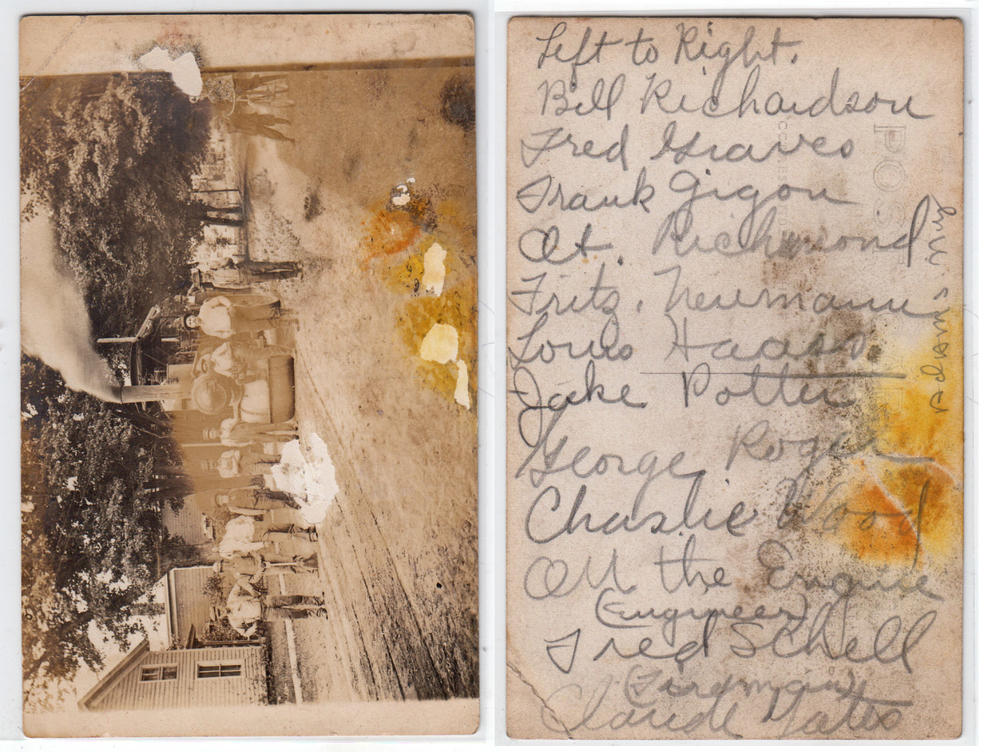 Left to Right.
Bill Richardson
Fred Graves
Frank Gigon
At. Richmond
Fritz. Neumann
Louis Haass.
Jake Potter
George Roger
Charlie Wood
On the Engine
(Engineer)
Fred Schell
(Fireman)
Claude Yates
POS